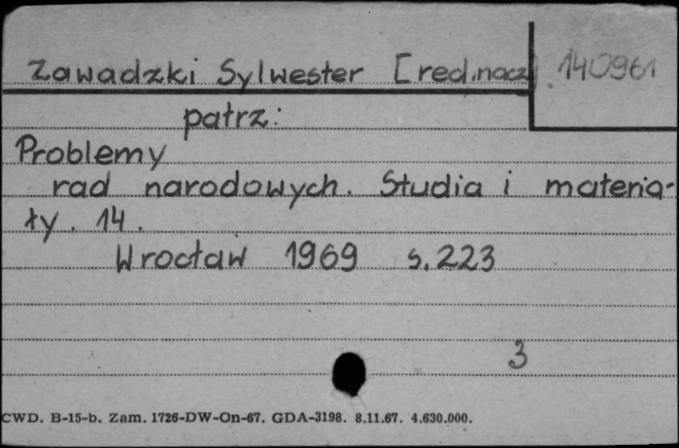 Zawadzki Sylwester [red.nacz] 140961
patrz:
Problemy
rad narodowych. Studia i materia-
ły. 14.
Wrocław 1969 s.223
3
CWD. B-15-b. Zam. 1726-DW-On-67. GDA-3198. 8.11.67. 4.630.000.